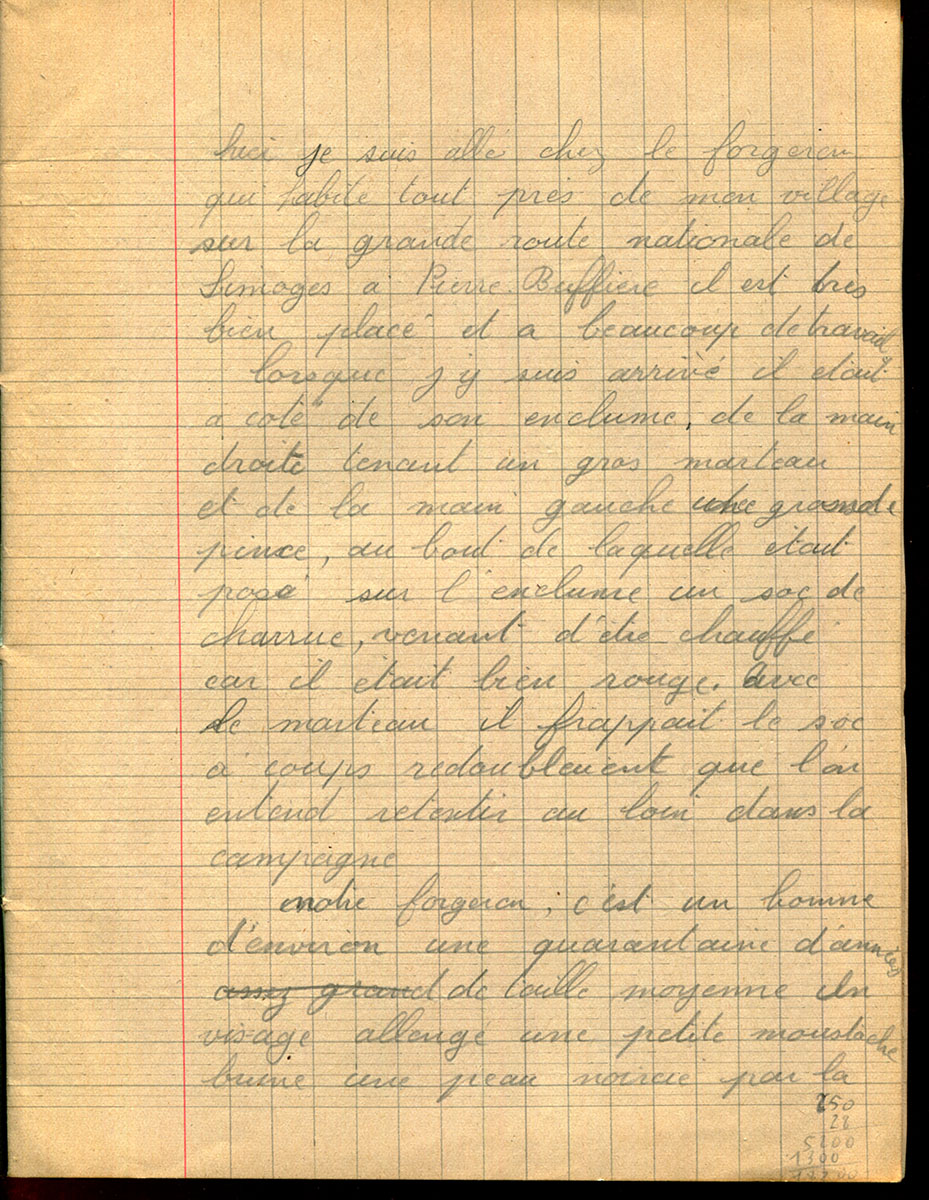 hier je suis allé chez le forgeron
qui habite tout près de mon village
sur la grande route nationale de
Limoges a Pierre-Buffière il est très
bien placé et a beaucoup de travail
lorsque j'y suis arrivé il etait
a coté de son enclume, de la main
droite tenant un gros marteau
et de la main gauche une grande
pince, au bout de laquelle etait
posé sur l'enclume un soc de
charrue, venant d'être chauffé
car il était bien rouge. avec
le marteau il frappait le soc
à coups redoublement que l'on
entend retentir au loin dans la
campagne
notre forgeron, c'est un homme
d'environ une quarantaine d'années
assez grand de taille moyenne un
visage allengé une petite moustache
brune une peau noircie par la
250
28
5200
1300